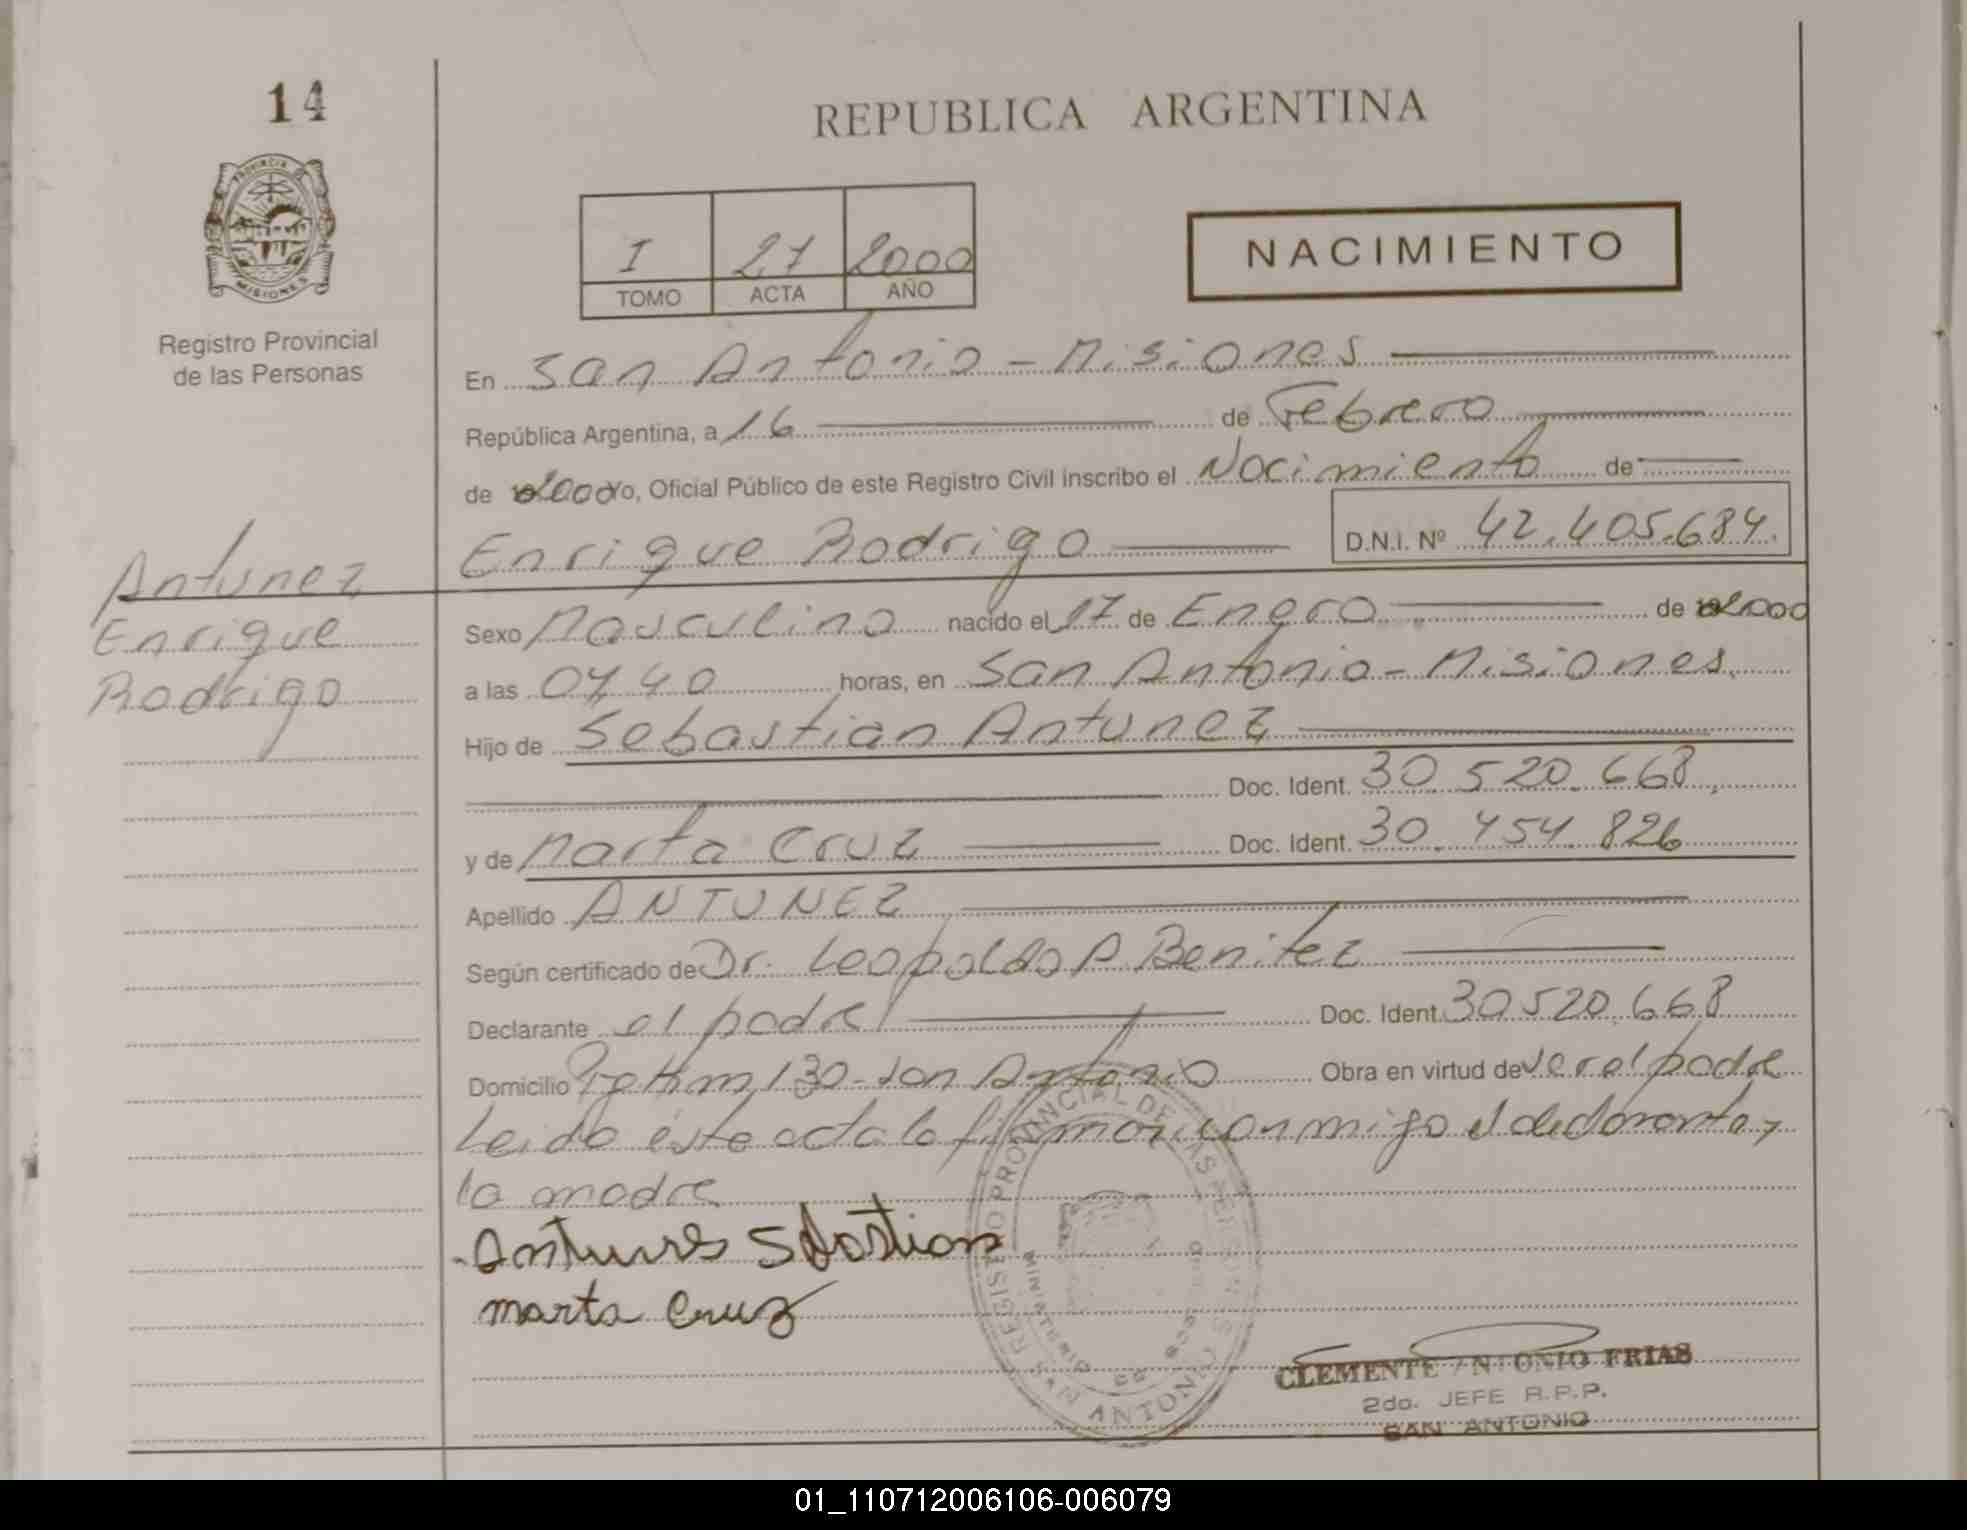 14
REPUBLICA ARGENTINA
PROVINCIA DE
MISIONES
I 27 2000
TOMO ACTA AÑO
NACIMIENTO
Registro Provincial
de las Personas
En San Antonio - Misiones
República Argentina, a 16 de Febrero
de 2000 yo, Oficial Público de este Registro Civil inscribo el Nacimiento de
Enrique Rodrigo D.N.I. Nº 42.405.684.
Antunez
Enrique
Rodrigo
Sexo Masculino nacido el 17 de Enero de 2000
a las 07,40 horas, en San Antonio - Misiones.
Hijo de Sebastian Antunez
Doc. Ident. 30.520.668.
y de Marta Cruz Doc. Ident. 30.454.826
Apellido ANTUNEZ
Según certificado de Dr. Leopoldo A. Benitez
Declarante el padre Doc. Ident. 30520.668
Domicilio Km 130 - San Antonio Obra en virtud de ser el padre
Leida este acta la firman conmigo el declarante y
la madre
Antunes Sebastian
Marta Cruz
REGISTRO PROVINCIAL DE LAS PERSONAS
MINISTERIO DE GOB
SAN ANTONIO
CLEMENTE ANTONIO FRIAS
2do. JEFE R.P.P.
SAN ANTONIO
01_110712006106-006079